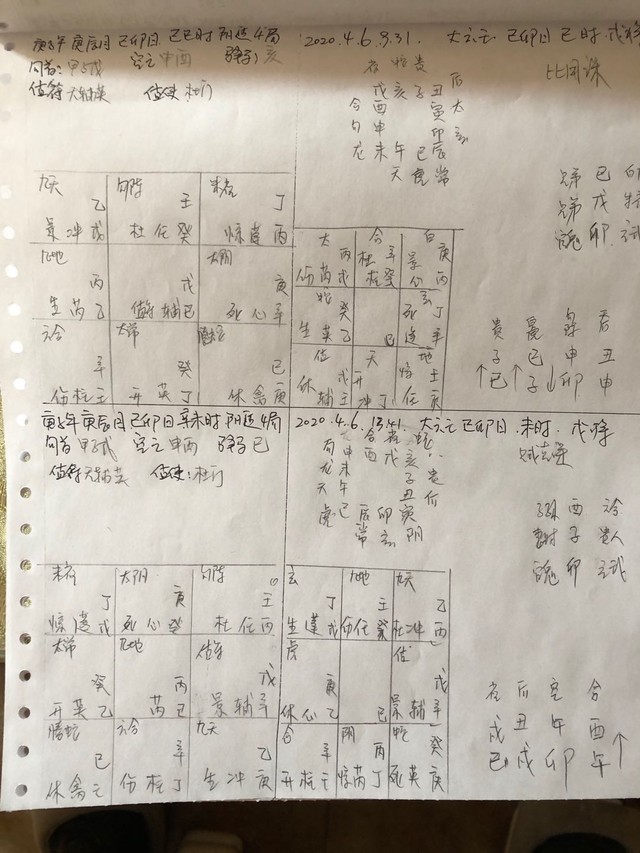 庚子年 庚辰月 己卯日 己巳时 阴遁4局
旬首:甲子戊 空亡 申酉 驿马 亥
值符 天辅 值使 杜门
2020.4.6.9.31. 己卯日 巳时 戌将
贵
戌 亥 子 丑 后
合 酉 寅 太
勾 申 卯 玄
龙 未 午 巳 辰
天 虎 常
兄弟 巳
兄弟 戌
官鬼 卯
贵
子 巳 申 丑
↑巳 ↑子 ↓卯 申
九天 乙 勾陈 壬 朱雀 丁
景 冲 戊 杜 任 癸 惊 蓬 丙
九地 丙 戊 太阴 庚
生 芮 乙 值符 辅 己 死 心 辛
六合 辛 太常 癸 己
伤 柱 壬 开 英 丁 休 禽 庚
太 丙 合 辛 白 庚
伤 芮 戊 杜 柱 癸 景 心 丙
蛇 癸 玄 丁
生 英 乙 己 死 蓬 辛
值 戊 天 乙 地 壬
休 辅 壬 开 冲 丁 惊 任 庚
庚子年 庚辰月 己卯日 辛未时 阴遁4局
旬首 甲子戊 空亡 申酉 驿马 巳
值符 天辅 值使:杜门
2020.4.6.13:41. 己卯日 未时 戌将
勾 申 酉 戌 亥
龙 未 子 贵
天 午 丑 后
虎 巳 辰 卯 寅 阴
常 玄
子孙 酉 六合
妻财 子 贵人
官鬼 卯 玄武
后 空 合
戌 丑 午 酉
巳 戌 卯 午 ↑
朱雀 丁 太阴 庚 勾陈 壬
惊 蓬 戊 死 心 癸 杜 任 丙
太常 癸 九地 丙 值符 戊
开 英 乙 芮 己 景 辅 辛
螣蛇 己 六合 辛 九天 乙
休 禽 壬 伤 柱 丁 生 冲 庚
玄 丁 九地 壬 九天 乙
生 蓬 戊 伤 任 癸 杜 冲 丙
虎 庚 值 戊
休 心 乙 己 景 辅 辛
合 辛 阴 丙 蛇 癸
开 柱 壬 惊 芮 丁 死 英 庚